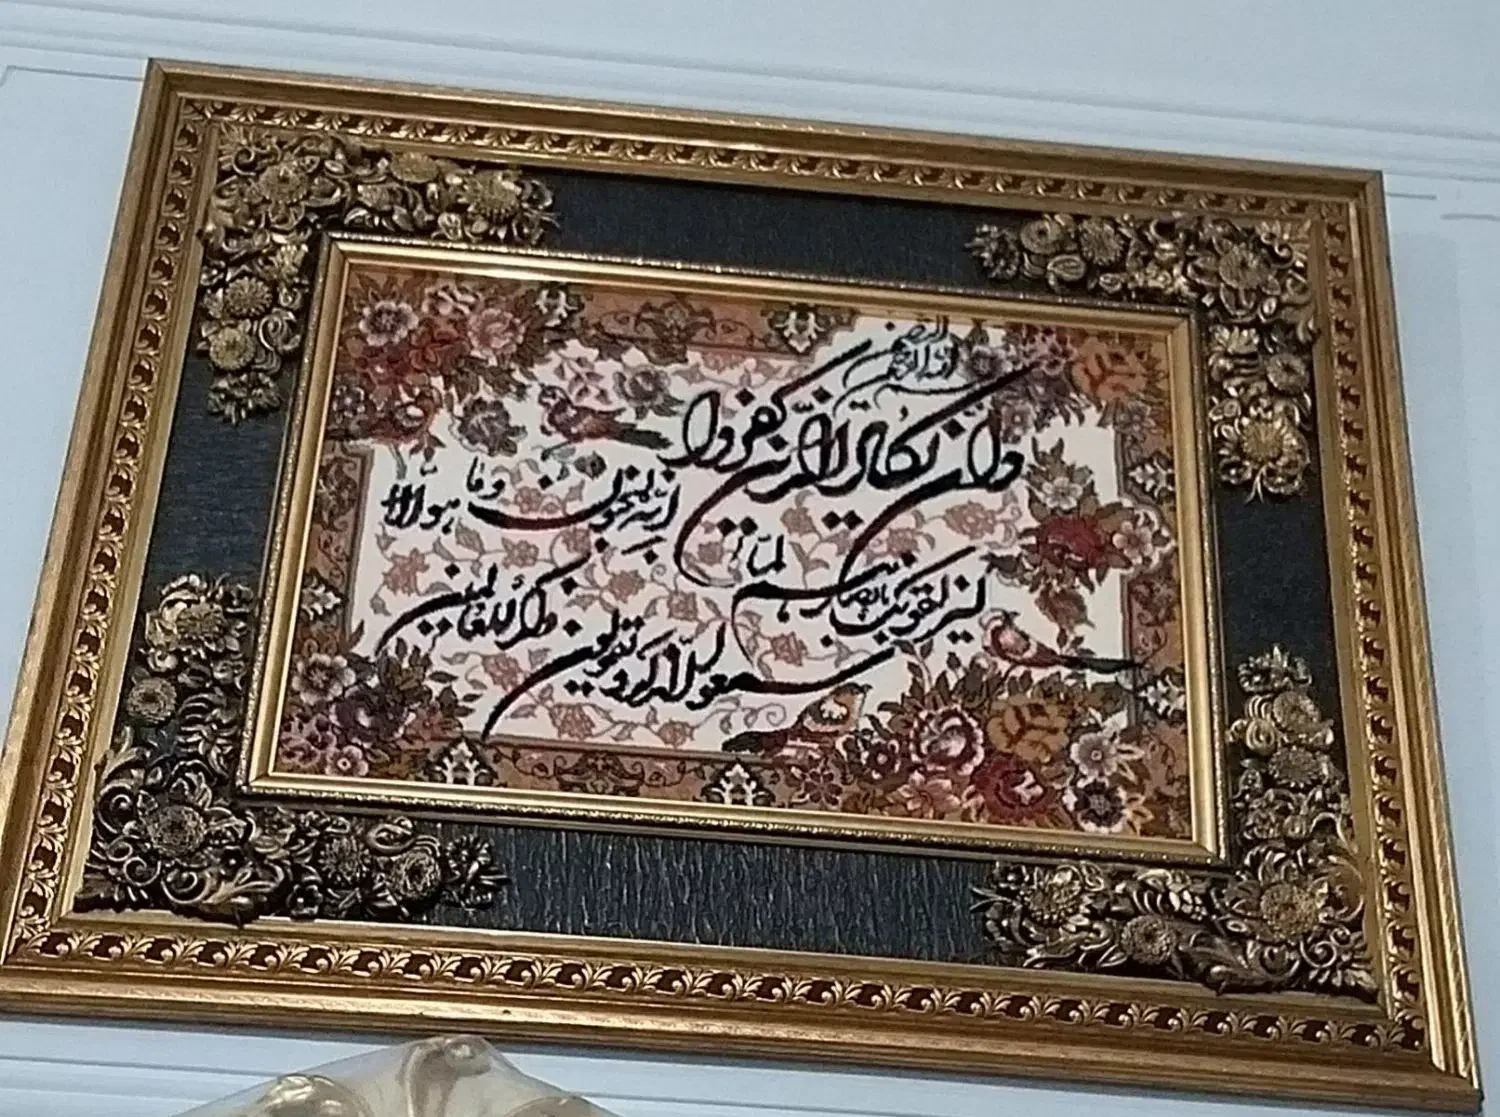 بسم الله الرحمن الرحیم
وان یکاد الذین کفروا
لیزلقونک بابصارهم لما
سمعوا الذکر و یقولون
انه لمجنون وما هو الا
ذکر للعالمین